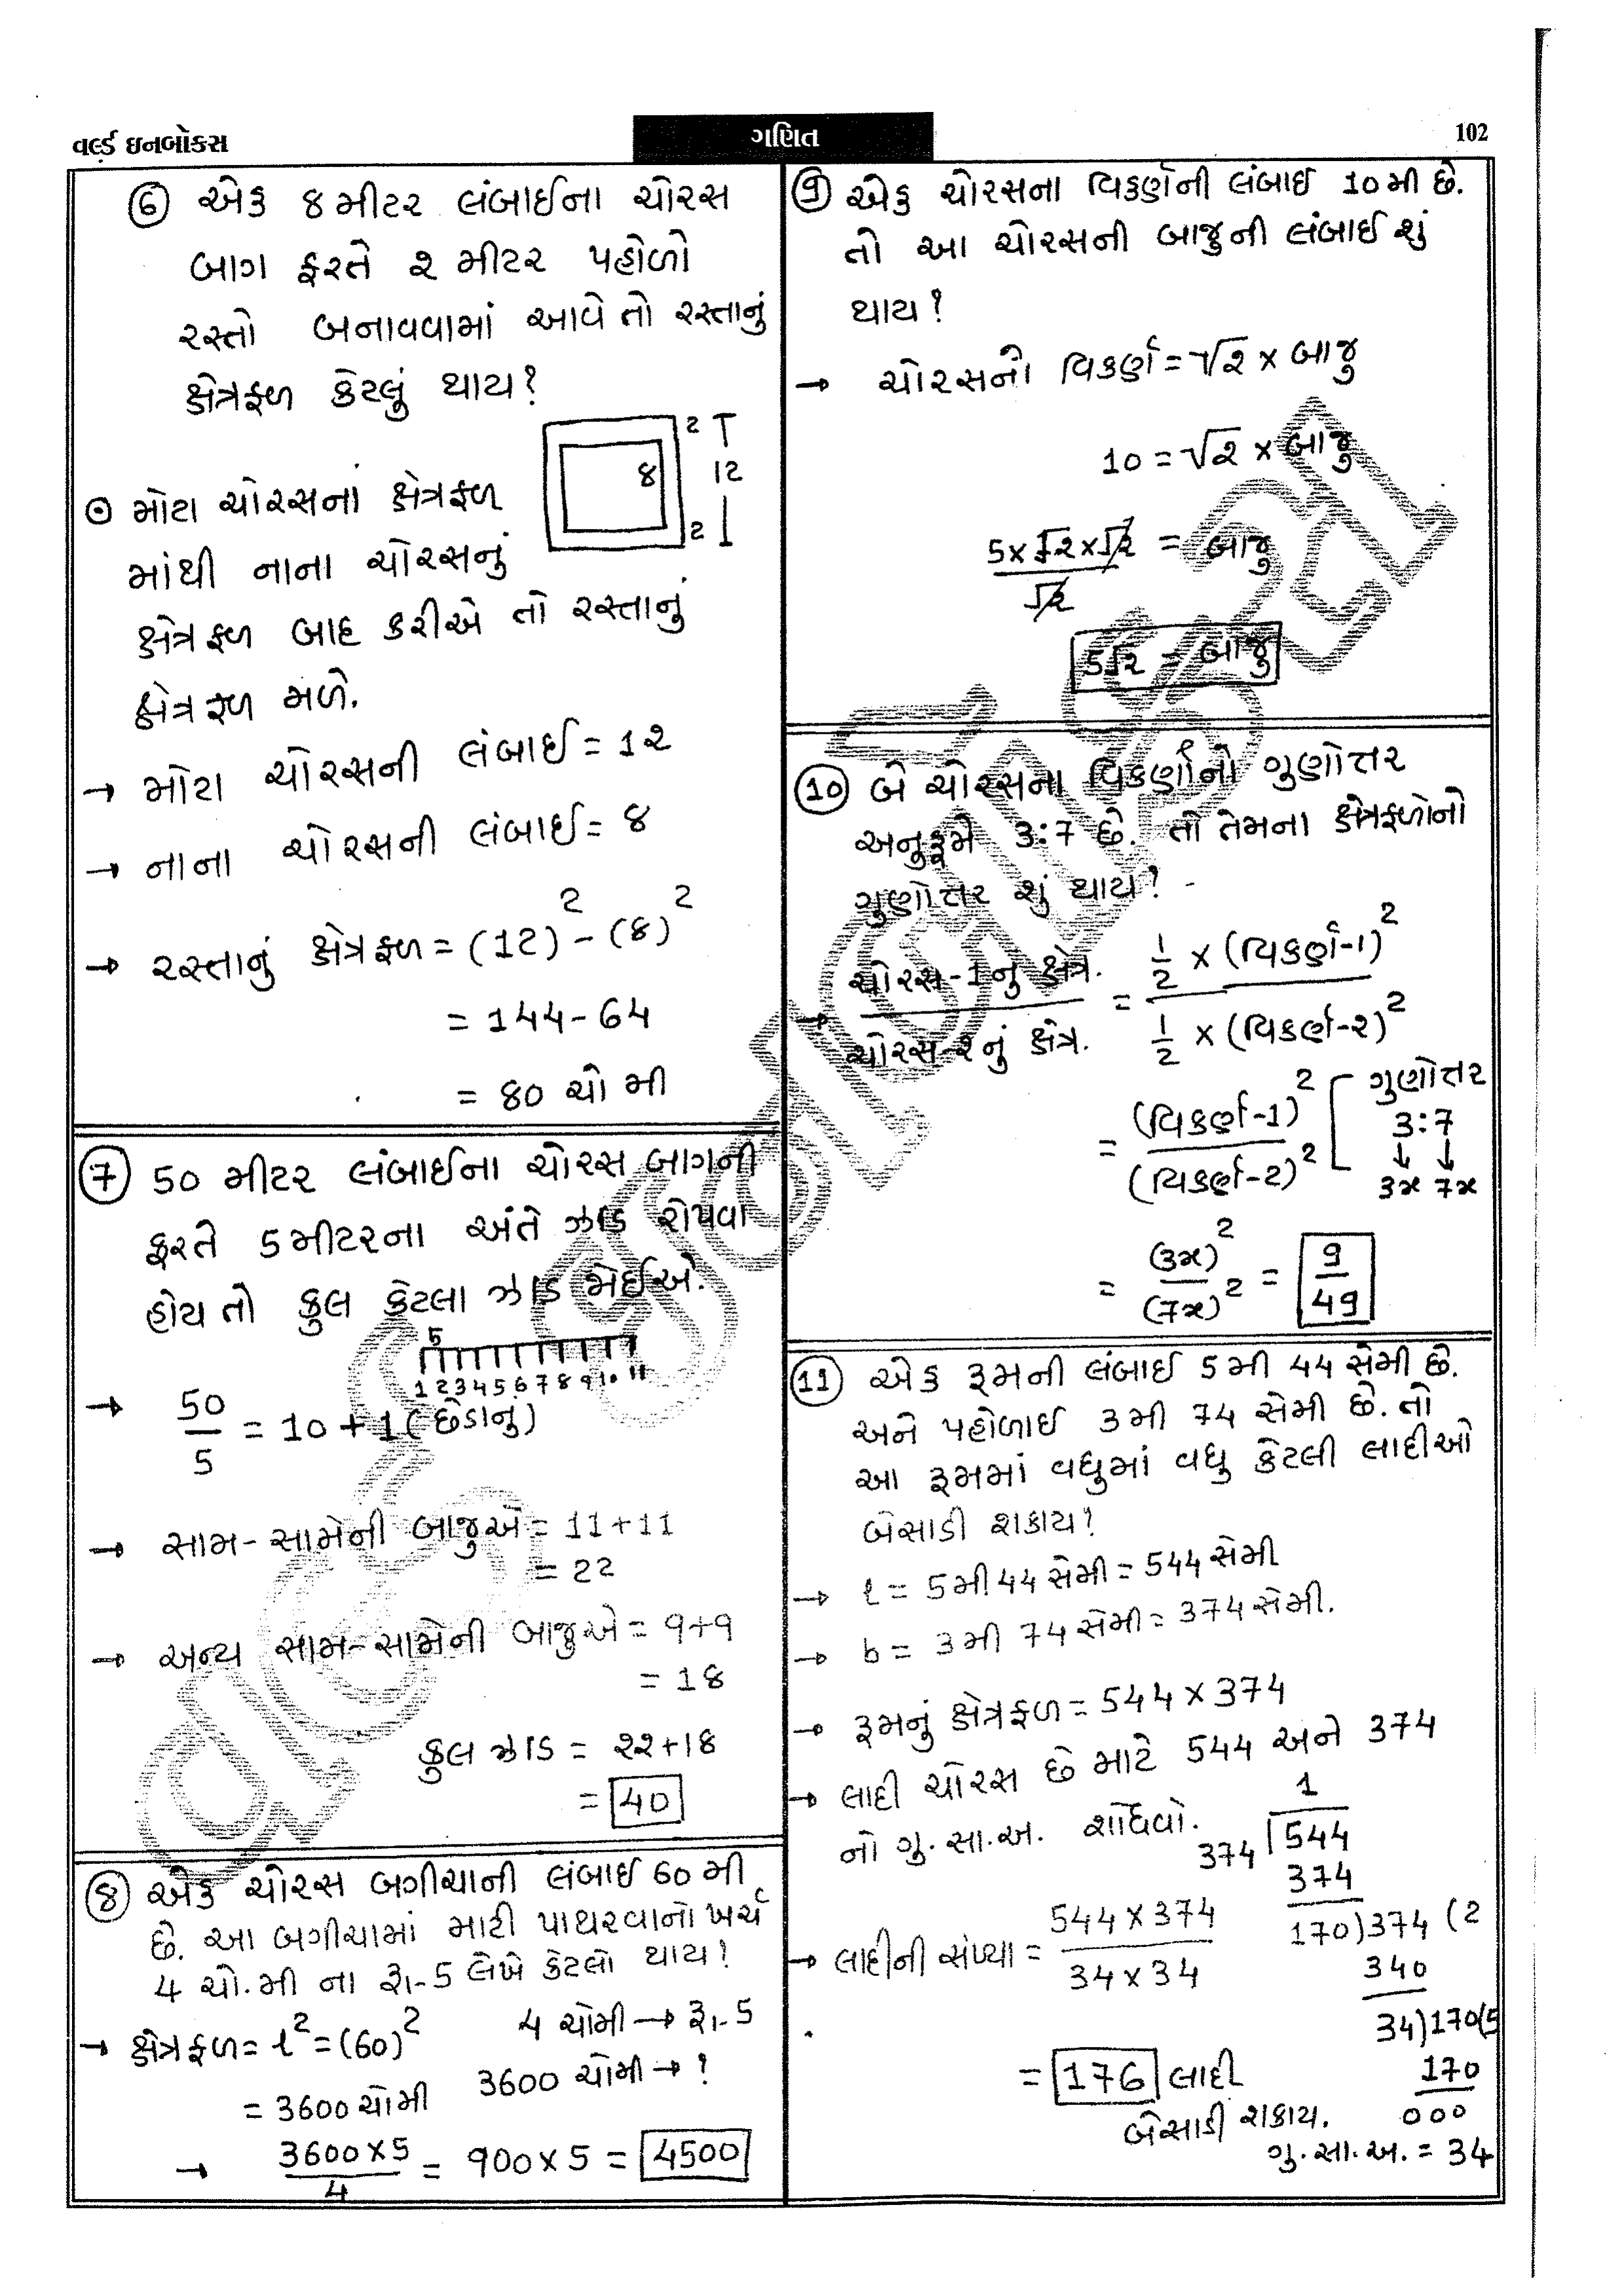 વર્લ્ડ ઇનબોકસ
ગણિત
102
⑥ એક ૪ મીટર લંબાઈના ચોરસ
બાગ ફરતે ૨ મીટર પહોળો
રસ્તો બનાવવામાં આવે તો રસ્તાનું
ક્ષેત્રફળ કેટલું થાય?
2
8
12
2
⊙ મોટા ચોરસનાં ક્ષેત્રફળ
માંથી નાના ચોરસનું
ક્ષેત્રફળ બાદ કરીએ તો રસ્તાનું
ક્ષેત્રફળ મળે.
→ મોટા ચોરસની લંબાઈ = 1૨
→ નાના ચોરસની લંબાઈ = 8
→ રસ્તાનું ક્ષેત્રફળ = (12)² - (8)²
= 144 - 64
= 80 ચો મી
⑦ 50 મીટર લંબાઈના ચોરસ બાગની
ફરતે 5 મીટરના અંતે ઝાડ રોપવા
હોય તો કુલ કેટલા ઝાડ જોઈએ.
5
1 2 3 4 5 6 7 8 9 10 11
→ 50/5 = 10 + 1 (છેડાનું)
→ સામ-સામેની બાજુએ = 11+11
= 22
→ અન્ય સામ-સામેની બાજુએ = 9+9
= 18
કુલ ઝાડ = ૨૨+18
= 40
⑧ એક ચોરસ બગીચાની લંબાઈ 60 મી
છે. આ બગીચામાં માટી પાથરવાનો ખર્ચ
4 ચો.મી ના રૂા-5 લેખે કેટલો થાય?
→ ક્ષેત્રફળ = l² = (60)²
4 ચોમી → રૂા-5
= 3600 ચોમી
3600 ચોમી → ?
→ 3600×5/4 = 900×5 = 4500
⑨ એક ચોરસના વિકર્ણની લંબાઈ 10 મી છે.
તો આ ચોરસની બાજુની લંબાઈ શું
થાય?
→ ચોરસનો વિકર્ણ = √૨ × બાજુ
10 = √૨ × બાજુ
5×√૨×√૨/√૨ = બાજુ
5√૨ = બાજુ
⑩ બે ચોરસના વિકર્ણોનો ગુણોત્તર
અનુક્રમે 3:7 છે. તો તેમના ક્ષેત્રફળોનો
ગુણોત્તર શું થાય?
→ ચોરસ-1નું ક્ષેત્ર./ચોરસ-૨નું ક્ષેત્ર. = 1/2 × (વિકર્ણ-1)²/1/2 × (વિકર્ણ-૨)²
= (વિકર્ણ-1)²/(વિકર્ણ-2)²
ગુણોત્તર
3:7
↓ ↓
3x 7x
= (3x)²/(7x)² = 9/49
⑪ એક રૂમની લંબાઈ 5 મી 44 સેમી છે.
અને પહોળાઈ 3 મી 74 સેમી છે. તો
આ રૂમમાં વધુમાં વધુ કેટલી લાદીઓ
બેસાડી શકાય?
→ l = 5 મી 44 સેમી = 544 સેમી
→ b = 3 મી 74 સેમી = 374 સેમી.
→ રૂમનું ક્ષેત્રફળ = 544 × 374
→ લાદી ચોરસ છે માટે 544 અને 374
નો ગુ.સા.અ. શોધવો.
1
374 ) 544
374
170 ) 374 ( 2
340
34 ) 170 ( 5
170
000
ગુ.સા.અ. = 34
→ લાદીની સંખ્યા = 544 × 374/34 × 34
= 176 લાદી
બેસાડી શકાય.